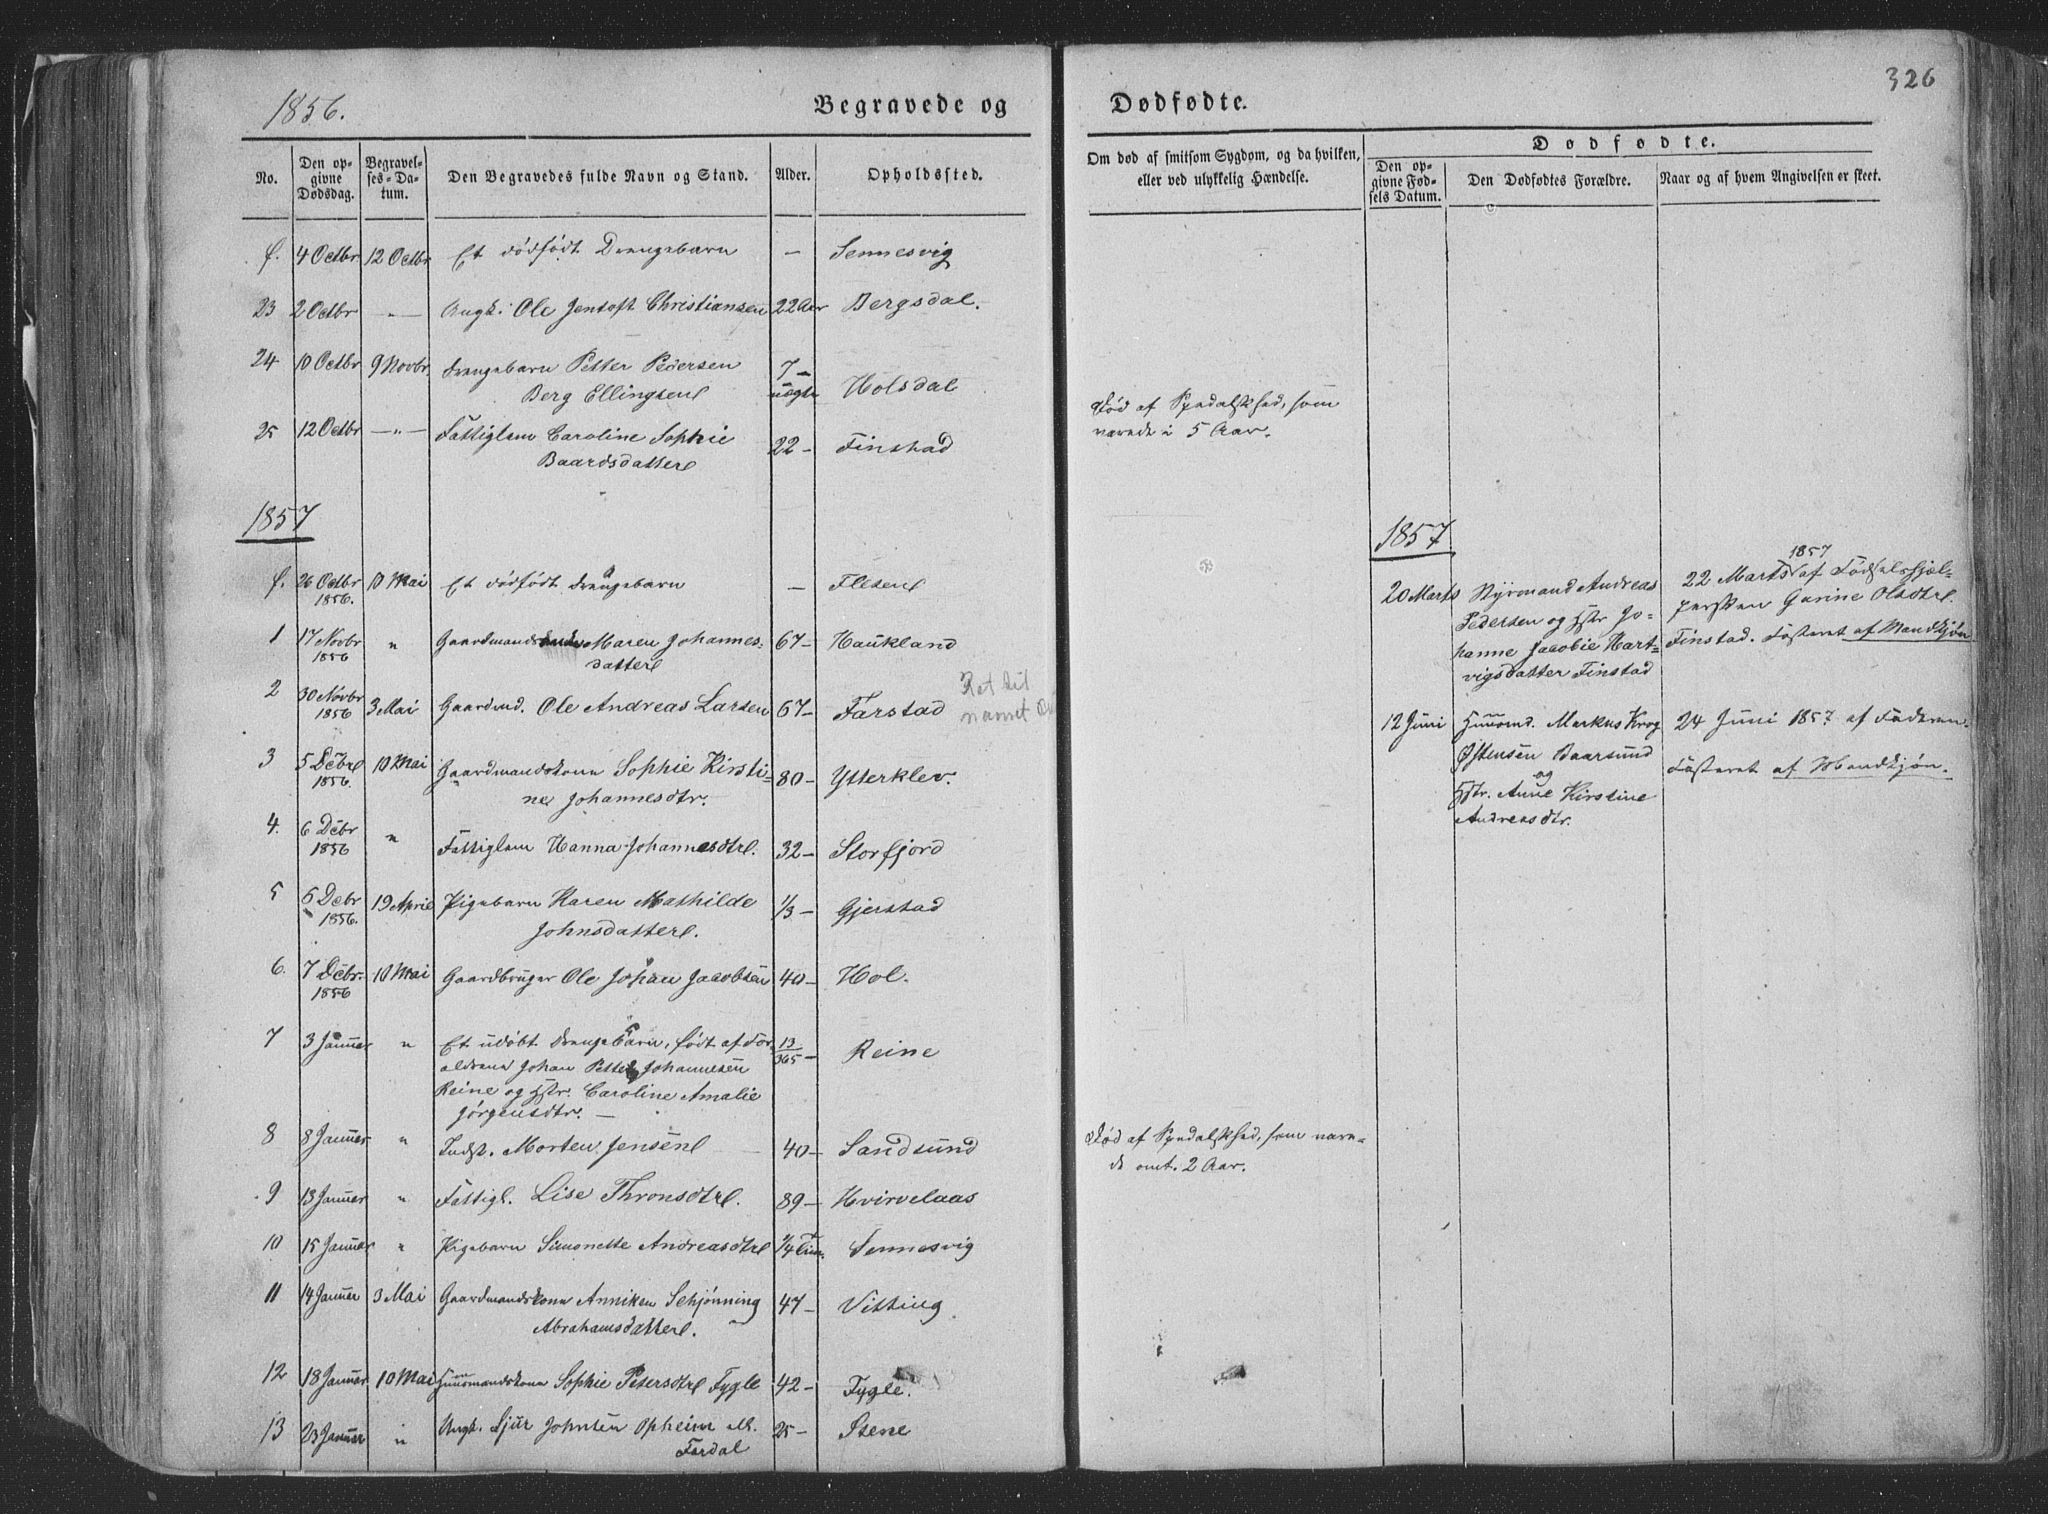 1856.
Begravede og
No.
Den op-
givne
Dødsdag.
Begravel-
ses-Da-
tum.
Den Begravedes fulde Navn og Stand.
Alder.
Opholdssted.
f. 4 Octbr 12 Octbr Et dødfødt Drengebarn — Sennesvig
23 2 Octbr —"— Ungk. Ole Jentoft Christiansen 22 Aar Bergsdal.
24 10 Octbr 9 Novbr. Drengebarn Petter Pedersen 7 —
Berg Ellingsen Holsdal
25 12 Octbr —"— Fattiglem Caroline Sophie 22 — Finstad
Baardsdatter
1857
f. 26 Octbr 1856. 10 Mai Et dødfødt Drengebarn — Flesen
1 17 Novbr 1856 " Gaardmandskone Maren Johannes- 67 — Haukland
datter
2 30 Novbr 1856 3 Mai Gaardmd. Ole Andreas Larsen 67 — Farstad
Ret til
navnet
3 5 Debr 1856. 10 Mai Gaardmandskone Sophie Kirsti- 80 — Ytterklev.
ne Johannesdtr.
4. 6 Debr 1856 " Fattiglem Hanna Johannesdtr. 32 — Storfjord
5 6 Debr 1856. 19 April Pigebarn Karen Mathilde 1/3 — Gjerstad
Johnsdatter.
6. 7 Debr. 1856 10 Mai Gaardbruger Ole Johan Jacobsen 40 — Hol.
7 3 Januer " Et udøbt Drengebarn, født af For- 13/365 — Reine
ældrene Johan Petter Johannesen
Reine og Hstr. Caroline Amalie
Jørgensdtr. —
8 8 Januer " Indst. Morten Jensen 40 — Sandsund
9 13 Januer " Fattigl. Lise Thronsdtr. 89 — Hvirvelaas
10 15 Januer " Pigebarn Simonette Andreasdtr 1/4 Tim. Sennesvig
11 14 Januer 3 Mai Gaardmandskone Anniken Schjønning 47 — Vitting
Abrahamsdatter.
12 18 Januar 10 Mai Huusmandskone Sophie Petersdtr Fygle 42 — Fygle.
13 23 Januar " Ungk. Sjur Johnsen Opheim ell. 25 — Stene
Fardal
Dødfødte.
326
Om død af smitsom Sygdom, og da hvilken,
eller ved ulykkelig Hændelse.
Dødfødte.
Den op-
givne Fød-
sels Datum.
Den Dødfødtes Forældre.
Naar og af hvem Angivelsen er skeet.
Død af Spedalskhed, som
varede i 5 Aar.
Død af Spedalskhed, som vare-
de omt. 2 Aar.
1857
20 Marts
Styrmand Andreas
Pedersen og Hstr Jo-
hanne Jacobie Hart-
vigsdatter Finstad
22 Marts 1857 af Fødselshjæl-
persken Garine Olsdtr.
Finstad. Fosteret af Mandkjøn
12 Juni
Huusmd. Markus Krog
Østensen Baarsund
og
Hstr. Anne Kirstine
Andreasdtr.
24 Juni 1857 af Faderen.
Fosteret af Mandkjøn.